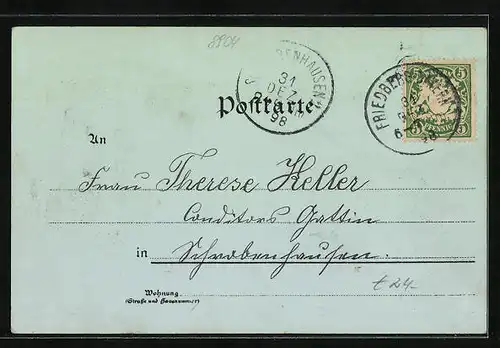 8904
BENHAUSEN
31
DEZ
98
Postkarte.
FRIEDBERG
5 5
PFENNIG
An
Frau Therese Keller
Conditors Gattin
in Schrobenhausen.
Wohnung
(Straße und Hausnummer)
£ 24-